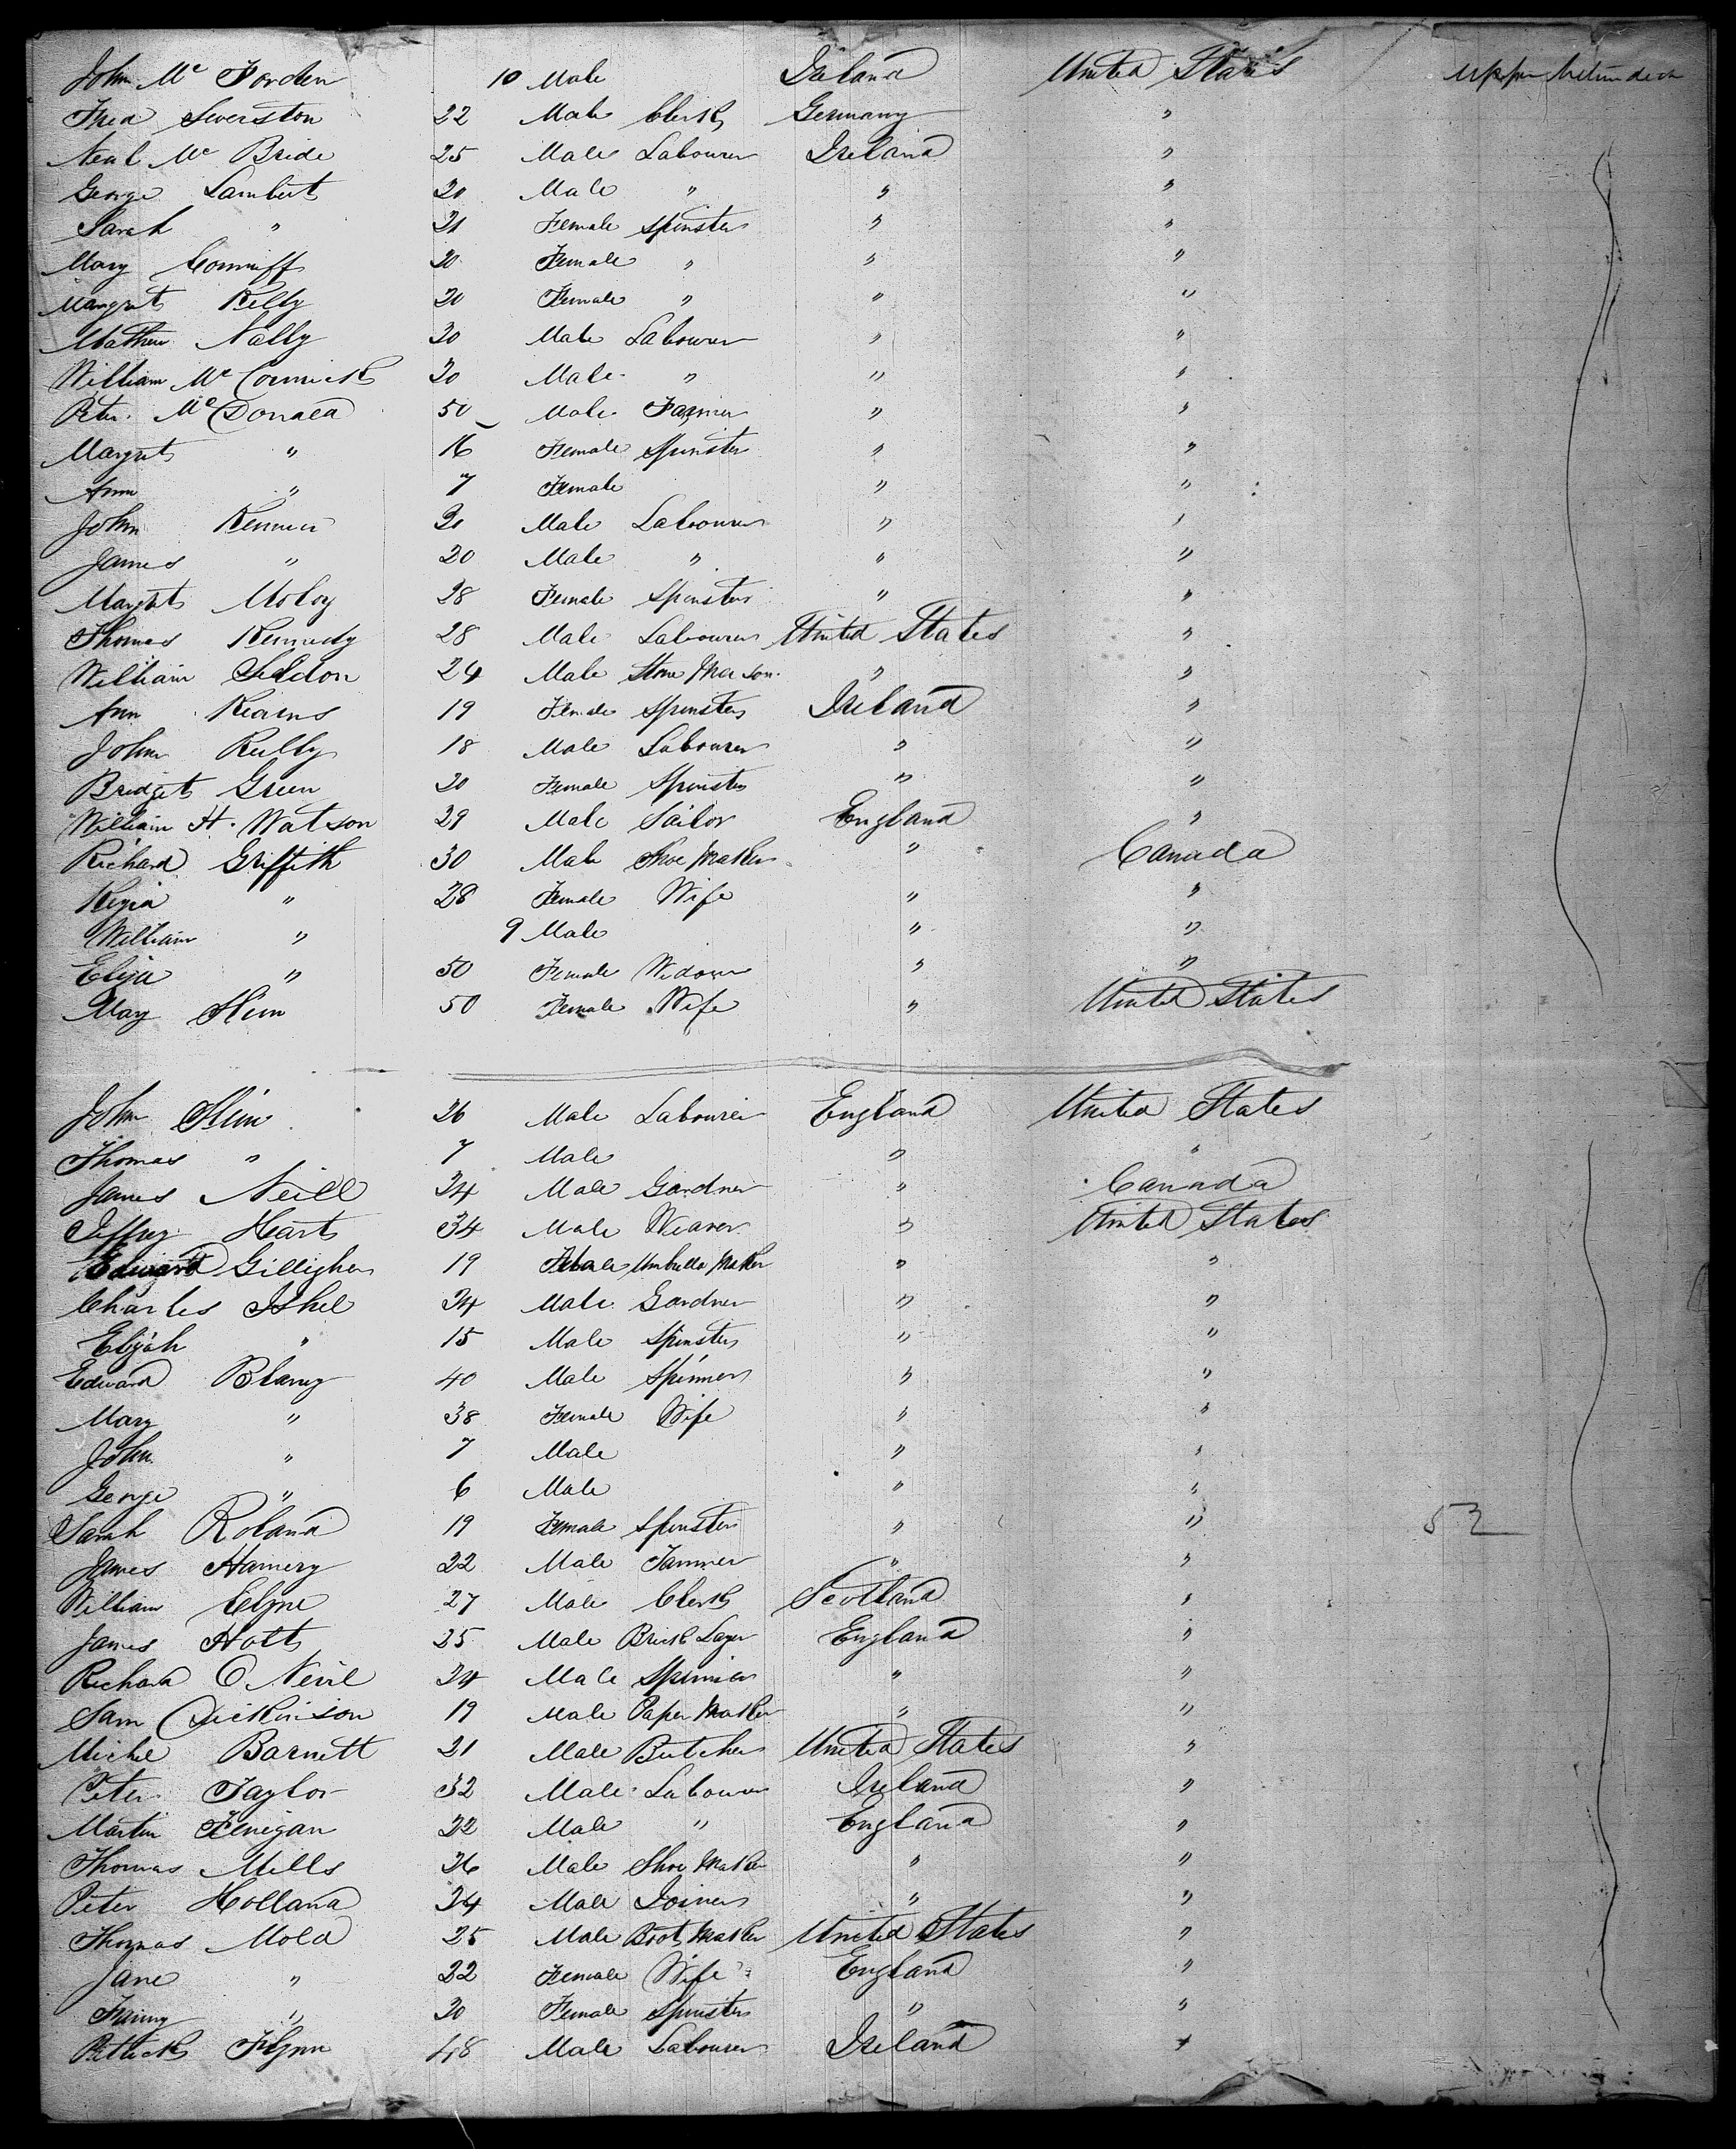 John Mc Forden 10 Male Ireland United States Upper between deck
Fred Severston 22 Male Clerk Germany "
Neal Mc Bride 25 Male Labourer Ireland "
George Lambert 20 Male " " "
Sarah " 21 Female Spinster " "
Mary Conniff 20 Female " " "
Margret Kelly 20 Female " " "
Mathew Nally 30 Male Labourer " "
William Mc Cormick 20 Male " " "
Peter Mc Donald 50 Male Farmer " "
Margret " 16 Female Spinster " "
Ann " 7 Female " "
John Male Labourer " "
James " 20 Male " " "
Margret Moloy 28 Female Spinster " "
Thomas Kennedy 28 Male Labourer United States "
William Seldon 24 Male Stone Mason " "
Ann Kearns 19 Female Spinster Ireland "
John Reilly 18 Male Labourer " "
Bridget Green 20 Female Spinster " "
William H. Watson 29 Male Sailor England "
Richard Griffith 30 Male Shoe Maker " Canada
" 28 Female Wife " "
William " 9 Male " "
Eliza " 50 Female Widow " "
May Slim 50 Female Wife " United States
John Slim 26 Male Labourer England United States
Thomas " 7 Male " "
James Neill 34 Male Gardner " Canada
Jeffrey Hart 34 Male Weaver " United States
Edward Gilligher 19 Male Umbrella Maker " "
Charles Ishel 24 Male Gardner " "
Elijah " 15 Male Spinster " "
Edward Blamy 40 Male Spinner " "
Mary " 38 Female Wife " "
John " 7 Male " "
George " 6 Male " "
Sarah Roland 19 Female Spinster " " 52
James Hamery 22 Male Tanner " "
William 27 Male Clerk Scotland "
James Holt 25 Male Brick Layer England "
Richard O Neill 24 Male Spinner " "
Sam Dickinson 19 Male Paper Maker " "
Michel Barnett 21 Male Butcher United States "
Peter Taylor 32 Male Labourer Ireland "
Martin Fenigan 22 Male " England "
Thomas Mills 26 Male Shoe Maker " "
Peter Holland 24 Male Joiner " "
Thomas Mold 25 Male Boot Maker United States "
Jane " 22 Female Wife England "
Fanny " 20 Female Spinster " "
Pattrick Flynn 48 Male Labourer Ireland "